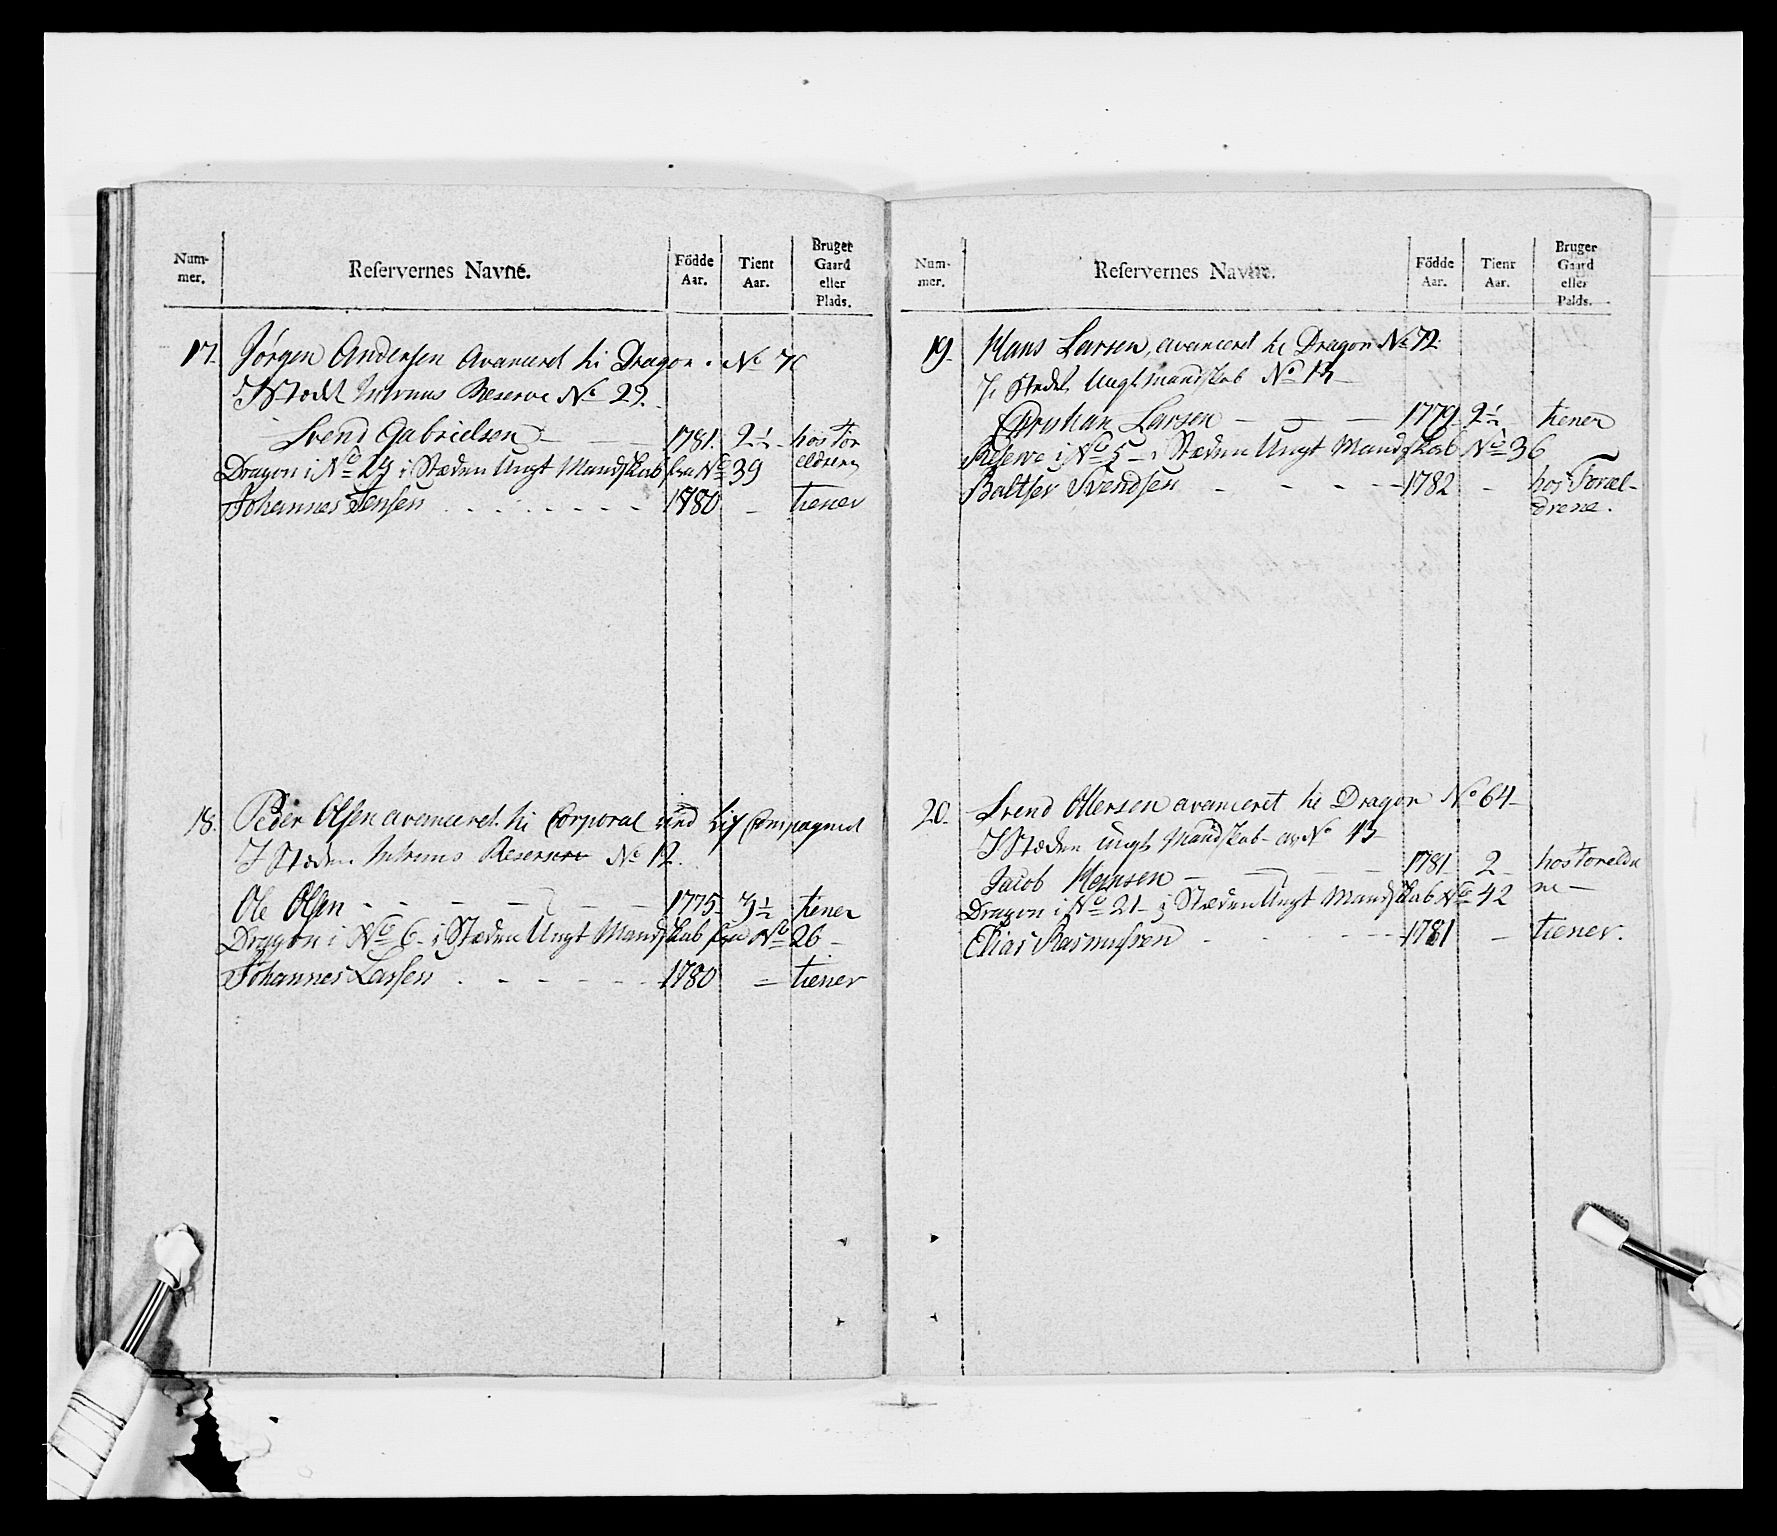 Num-
mer.
Reservernes Navne.
Födde
Aar.
Tient
Aar.
Bruger
Gaard
eller
Plads.
17. Jørgen Andersen Avanceret til Dragon No
I Stædet Reserve No 29.
Svend Gabrielsen 1781. 2½ hos For
ældrene
Dragon i No i Stæden Ungt Mandskab fra No 39
Johannes Jensen 1780 - tiener
18. Peder Olsen avanceret til Corporal ved Lif Compagniet
I Stæden Reserve No 12.
Ole Olsen 1775 3½ tiener
Dragon i No 6 i Stæden Ungt Mandskab fra No 26
Johannes Larsen 1780 = tiener
Num-
mer.
Reservernes Navne.
Födde
Aar.
Tient
Aar.
Bruger
Gaard
eller
Palds.
19. Hans Larsen, avanceret til Dragon No 72
I Stedet Ungt Mandskab No
Christian Larsen 1779 2½ tiener
Reserve i No 5 i Stæden Ungt Mandskab No 36
Baltser Svendsen 1782 - hos Foræl-
drene.
20. Svend Ottersen avanceret til Dragon No 64
I Stæden Ungt Mandskab No 13
Jacob 1781 2 hos Forældre
ne
Dragon i No 21 i Stæden Ungt Mandskab No 42
Elias Rasmussen 1781 - tiener.